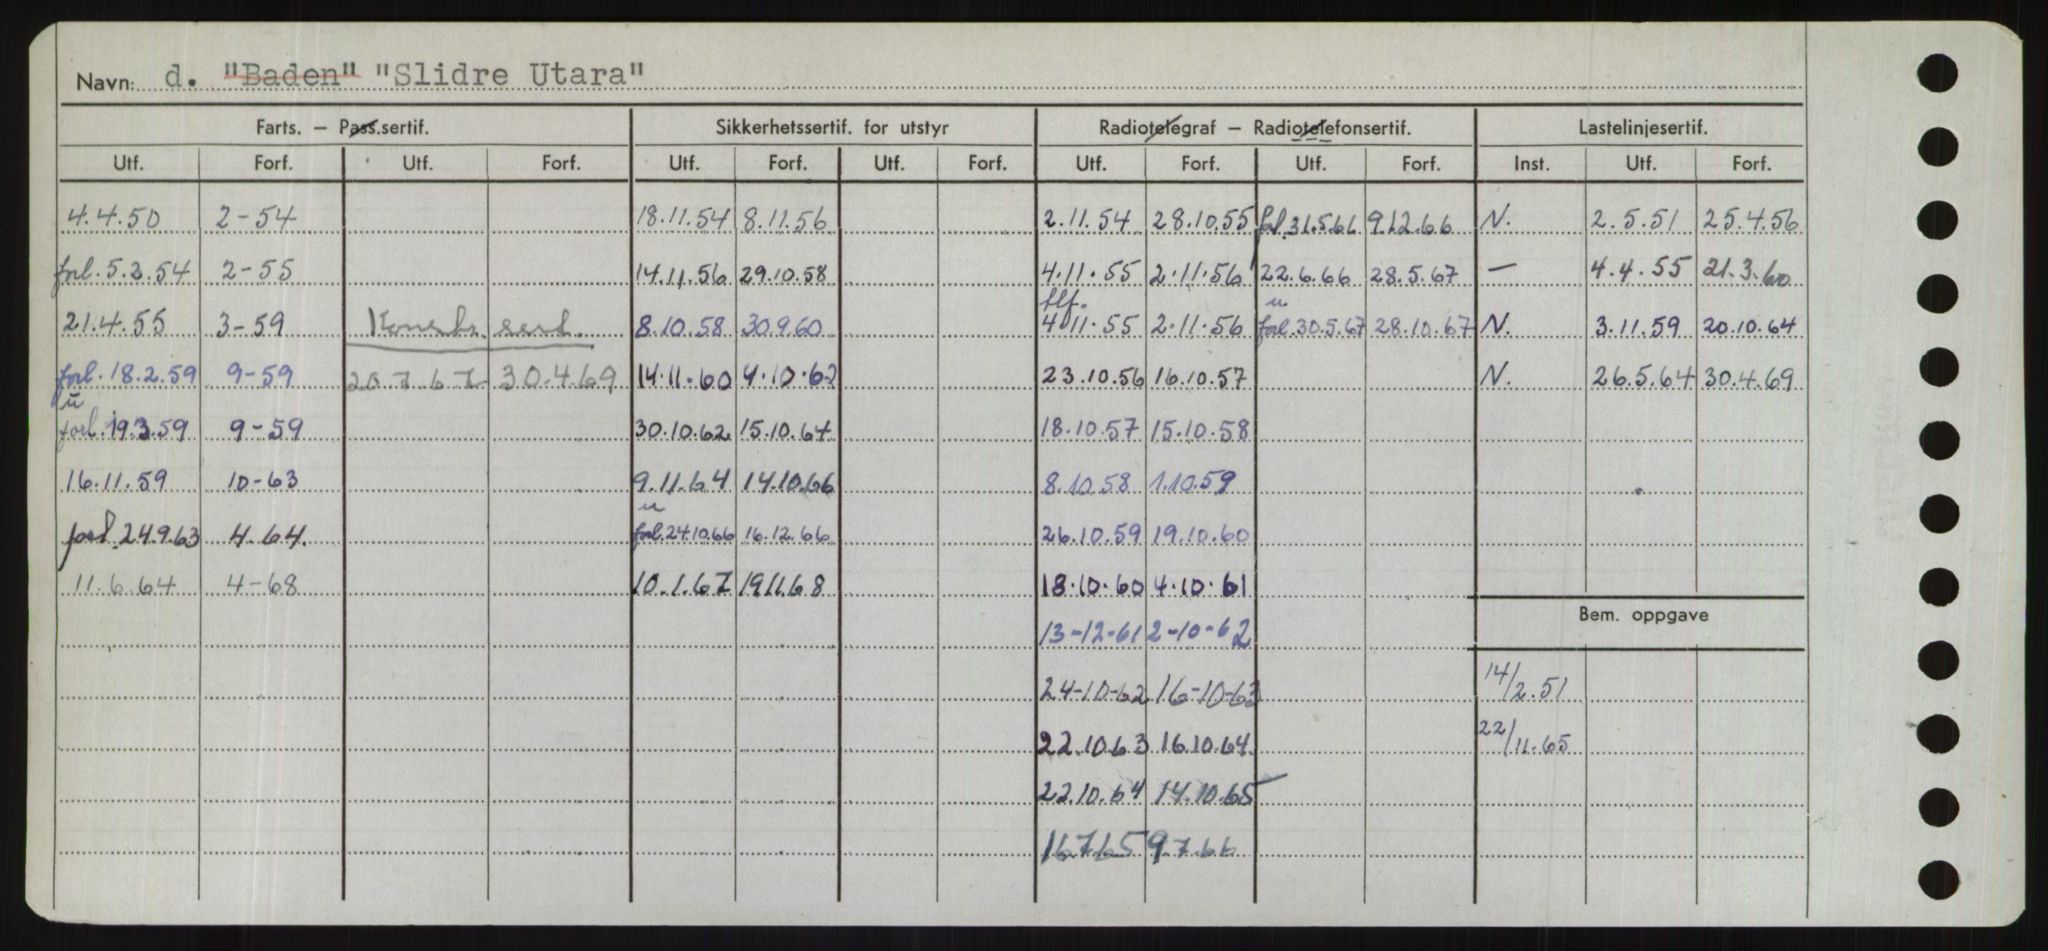 Navn: d. "Baden" "Slidre Utara"
Farts. – Pass.sertif. Sikkerhetssertif. for utstyr Radiotelegraf – Radiotelefonsertif. Lastelinjesertif.
Utf. Forf. Utf. Forf. Utf. Forf. Utf. Forf. Utf. Forf. Utf. Forf. Inst. Utf. Forf.
4.4.50 2-54 18.11.54 8.11.56 2.11.54 28.10.55 forl. 31.5.66 9.12.66 N. 2.5.51 25.4.56
forl. 5.2.54 2-55 14.11.56 29.10.58 4.11.55 2.11.56 22.6.66 28.5.67 — 4.4.55 21.3.60
tlf. u
21.4.55 3-59 Konstr. sert. 8.10.58 30.9.60 4.11.55 2.11.56 forl. 30.5.67 28.10.67 N. 3.11.59 20.10.64
forl. 18.2.59 9-59 20.7.67 30.4.69 14.11.60 4.10.62 23.10.56 16.10.57 N. 26.5.64 30.4.69
u
forl. 19.3.59 9-59 30.10.62 15.10.64 18.10.57 15.10.58
16.11.59 10-63 9.11.64 14.10.66 8.10.58 1.10.59
u
forl. 24.9.63 4-64. forl. 24.10.66 16.12.66 26.10.59 19.10.60
11.6.64 4-68 10.1.67 19.11.68 18.10.60 4.10.61
Bem. oppgave
13-12-61 2-10-62
24-10-62 16-10-63 14/2.51
22.10.63 16.10.64. 22/11.65
22.10.64 14.10.65
16.7.65 9.7.66